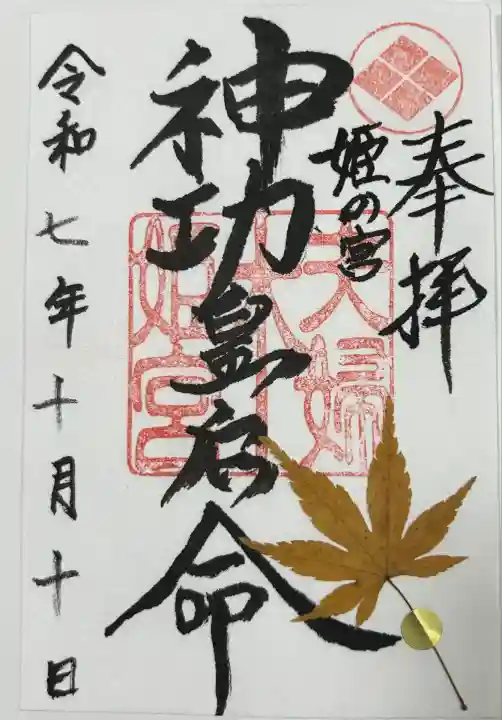 奉拝
姫の宮
神功皇后命
夫婦木
姫宮
令和七年十月十日